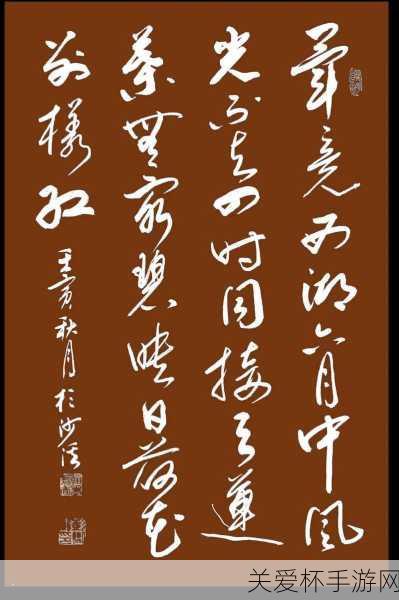 畢竟西湖六月中風
光不与四时同接天蓮
葉無窮碧映日荷花
别樣红
壬寅秋月於沙
关爱杯手游网